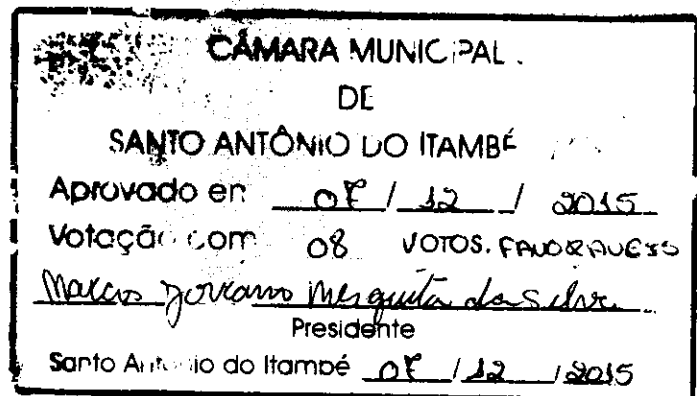 CÂMARA MUNICIPAL
DE
SANTO ANTÔNIO DO ITAMBÉ
Aprovado em 07 / 12 / 2015
Votação com 08 VOTOS. FAVORAVEIS
Marcio Mesquita da Silva
Presidente
Santo Antonio do Itambé 07 / 12 / 2015